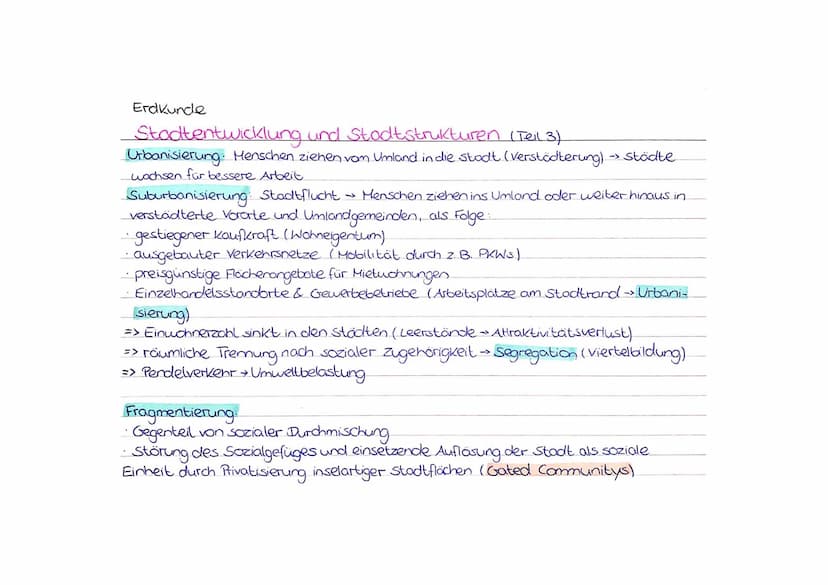 Erdkunde
Stadtentwicklung und Stadtstrukturen (Teil 3)
Urbanisierung: Menschen ziehen vom Umland in die Stadt (Verstädterung) → Städte
wachsen für bessere Arbeit
Suburbanisierung: Stadtflucht → Menschen ziehen ins Umland oder weiter hinaus in
verstädterte Vororte und Umlandgemeinden, als Folge:
· gestiegener Kaufkraft (Wohneigentum)
· ausgebauter Verkehrsnetze (Mobilität durch z.B. PKWs)
· preisgünstige Flächenangebote für Mietwohnungen
· Einzelhandelsstandorte & Gewerbebetriebe (Arbeitsplätze am Stadtrand → Urbani-
sierung)
=> Einwohnerzahl sinkt in den Städten (Leerstände → Attraktivitätsverlust)
=> räumliche Trennung nach sozialer Zugehörigkeit → Segregation (Viertelbildung)
=> Pendelverkehr → Umweltbelastung
Fragmentierung:
· Gegenteil von sozialer Durchmischung
· Störung des Sozialgefüges und einsetzende Auflösung der Stadt als soziale
Einheit durch Privatisierung inselartiger Stadtflächen (Gated Communitys)